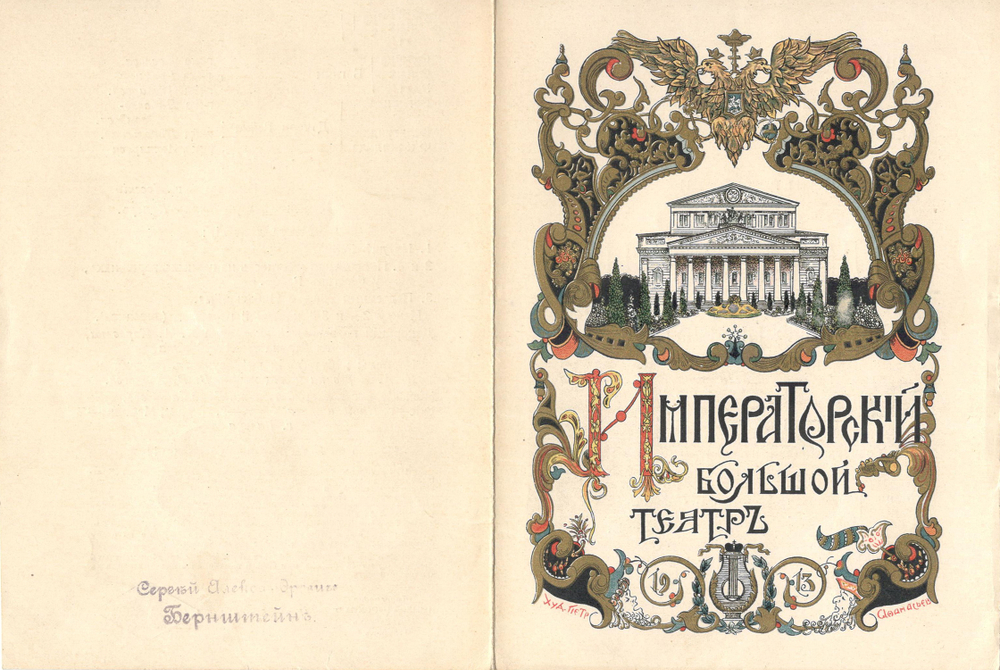 Сергѣй Александровичъ
Бернштейнъ.
Императорскій
Большой
Театръ
1913
Худ. Петр Аѳанасьев